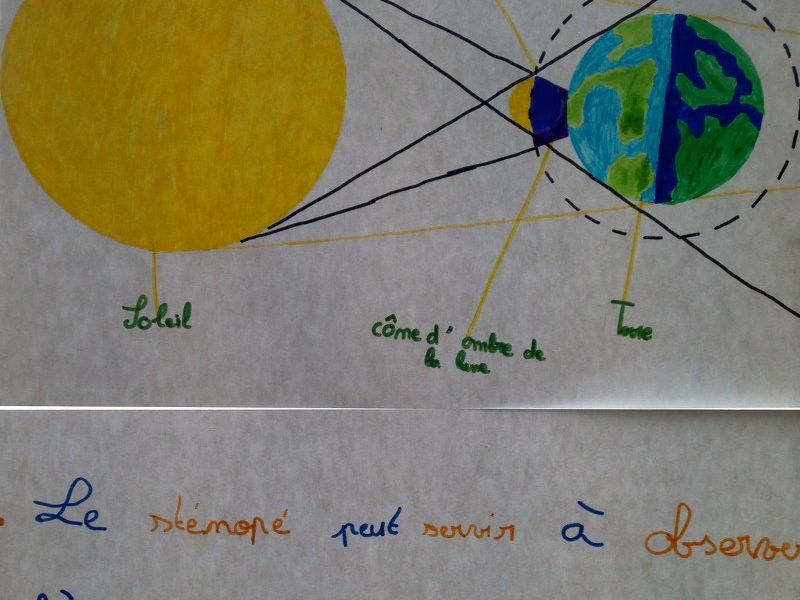 Soleil
cône d'ombre de
la lune
Terre
Le sténopé peut servir à observer